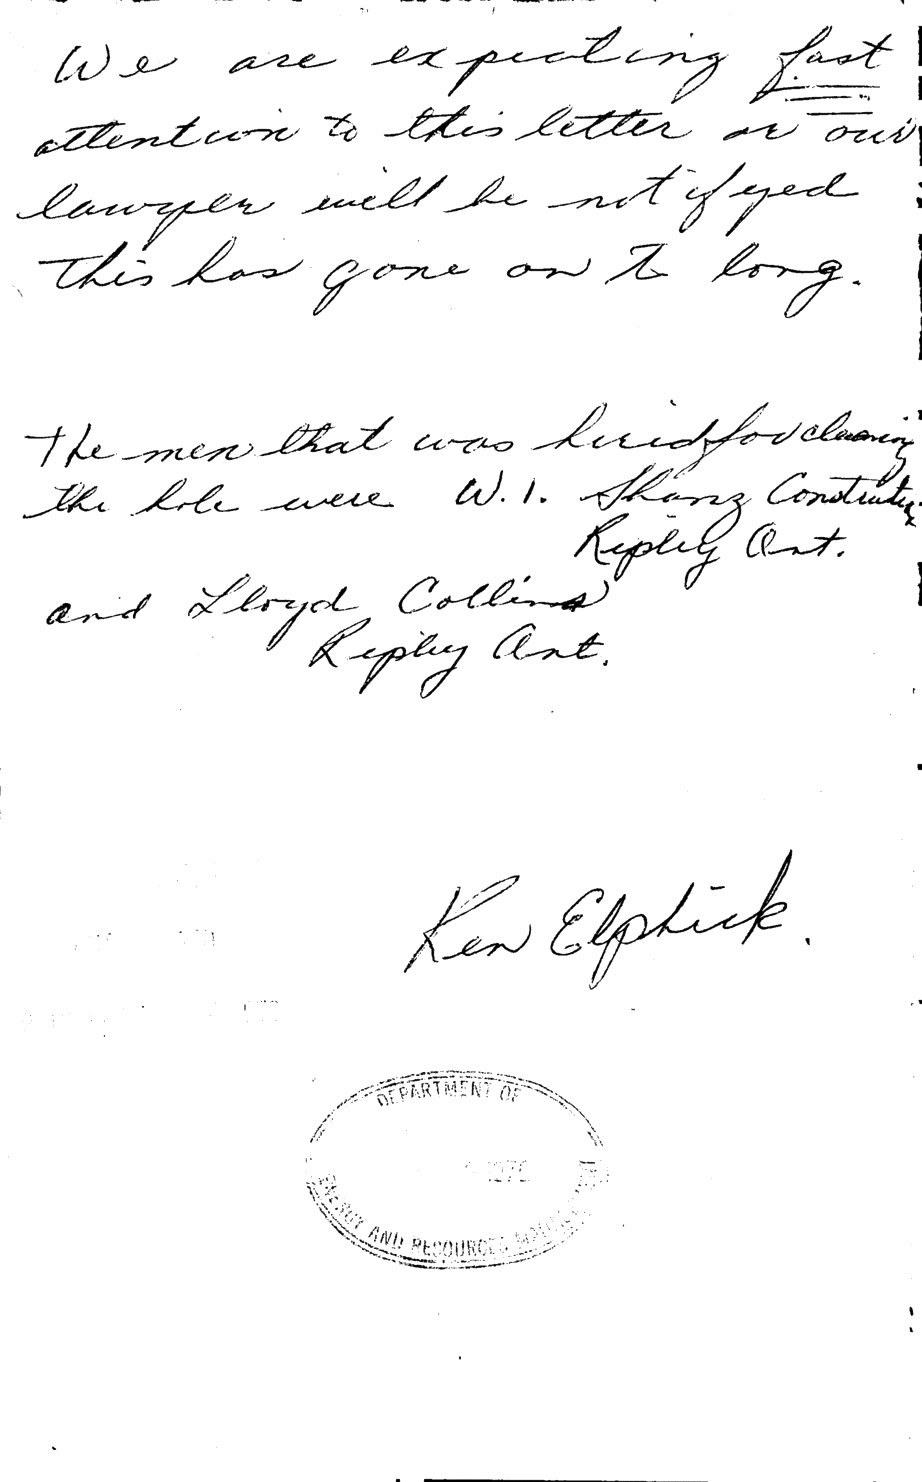 We are expecting fast
attention to this letter or our
lawyer will be notifyed
This has gone on to long.
The men that was hired for cleaning
the hole were W.I. Shanz Construction
Ripley Ont.
and Lloyd Collins
Ripley Ont.
Ken Elphick.
DEPARTMENT OF
ENERGY AND RESOURCES